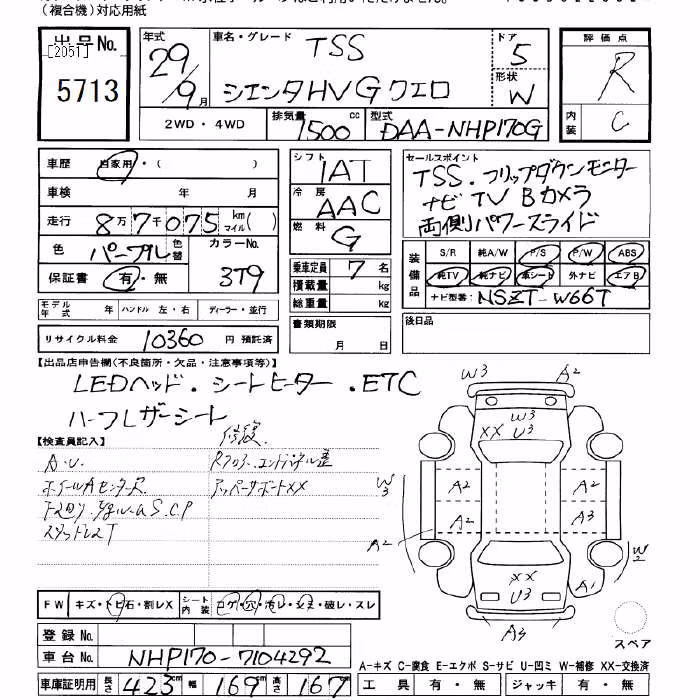 （複合機）対応用紙
出品No.
[2051]
5713
年式
29
9月
車名・グレード
TSS
シエンタHV G クエロ
ドア
5
形状
W
評価点
R
内装
C
2WD・4WD
排気量
1500 cc
型式
DAA-NHP170G
車歴
自家用・（　）
車検 年 月
走行
8万7千075 km マイル（　）
色
パープル
色替
カラーNo.
3T9
保証書 有・無
モデル年式 年 ハンドル 左・右 ディーラー・並行
リサイクル料金 10360 円 預託済
シフト
1AT
冷房
AAC
燃料
G
乗車定員 7 名
積載量 kg
総重量 kg
書類期限
月 日
セールスポイント
TSS．フリップダウンモニター
ナビ TV Bカメラ
両側パワースライド
装備品
S/R 純A/W P/S P/W ABS
純TV 純ナビ 革シート 外ナビ エアB
ナビ型番: NSZT-W66T
後日品
【出品店申告欄（不良箇所・欠品・注意事項等）】
LEDヘッド．シートヒーター．ETC
ハーフレザーシート
【検査員記入】
修復
A.U.
アッパーサポートXX
W3
A2
W3
XX U3
W3
A2
A2
A2
A3
A2
W2
XX
U3
A1
A3
スペア
FW キズ・トビ石・割レX
シート内装 コゲ・穴・汚レ・シミ・破レ・スレ
登録No.
車台No. NHP170-7104292
車庫証明用 長さ 423cm 幅 169cm 高さ 167cm
A-キズ C-腐食 E-エクボ S-サビ U-凹ミ W-補修 XX-交換済
工具 有・無 ジャッキ 有・無